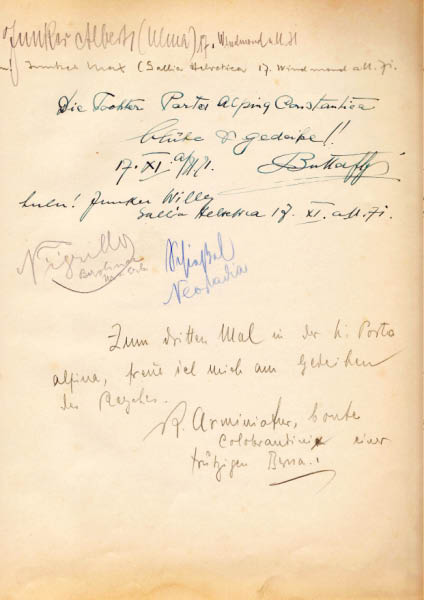 Junker Albert (Ulma) 17. Windmond a.U. 71
Junker Max (Gallia Helvetica 17. Windmond a.U. 71.
Die Tochter Porta Alpina Constantica
blühe & gedeihe!!
17. XI. a/U. 71.
Lulu! Junker Willy
Gallia Helvetica 17. XI. a.U. 71.
Nigrillo
Schlaßal
Neostadia
Zum dritten Mal in der h. Porta
alpina, freue ich mich am Gedeihen
des Reyches.
R. Arminiafur, bonte
Colobrantinix einer
trützigen Berna.